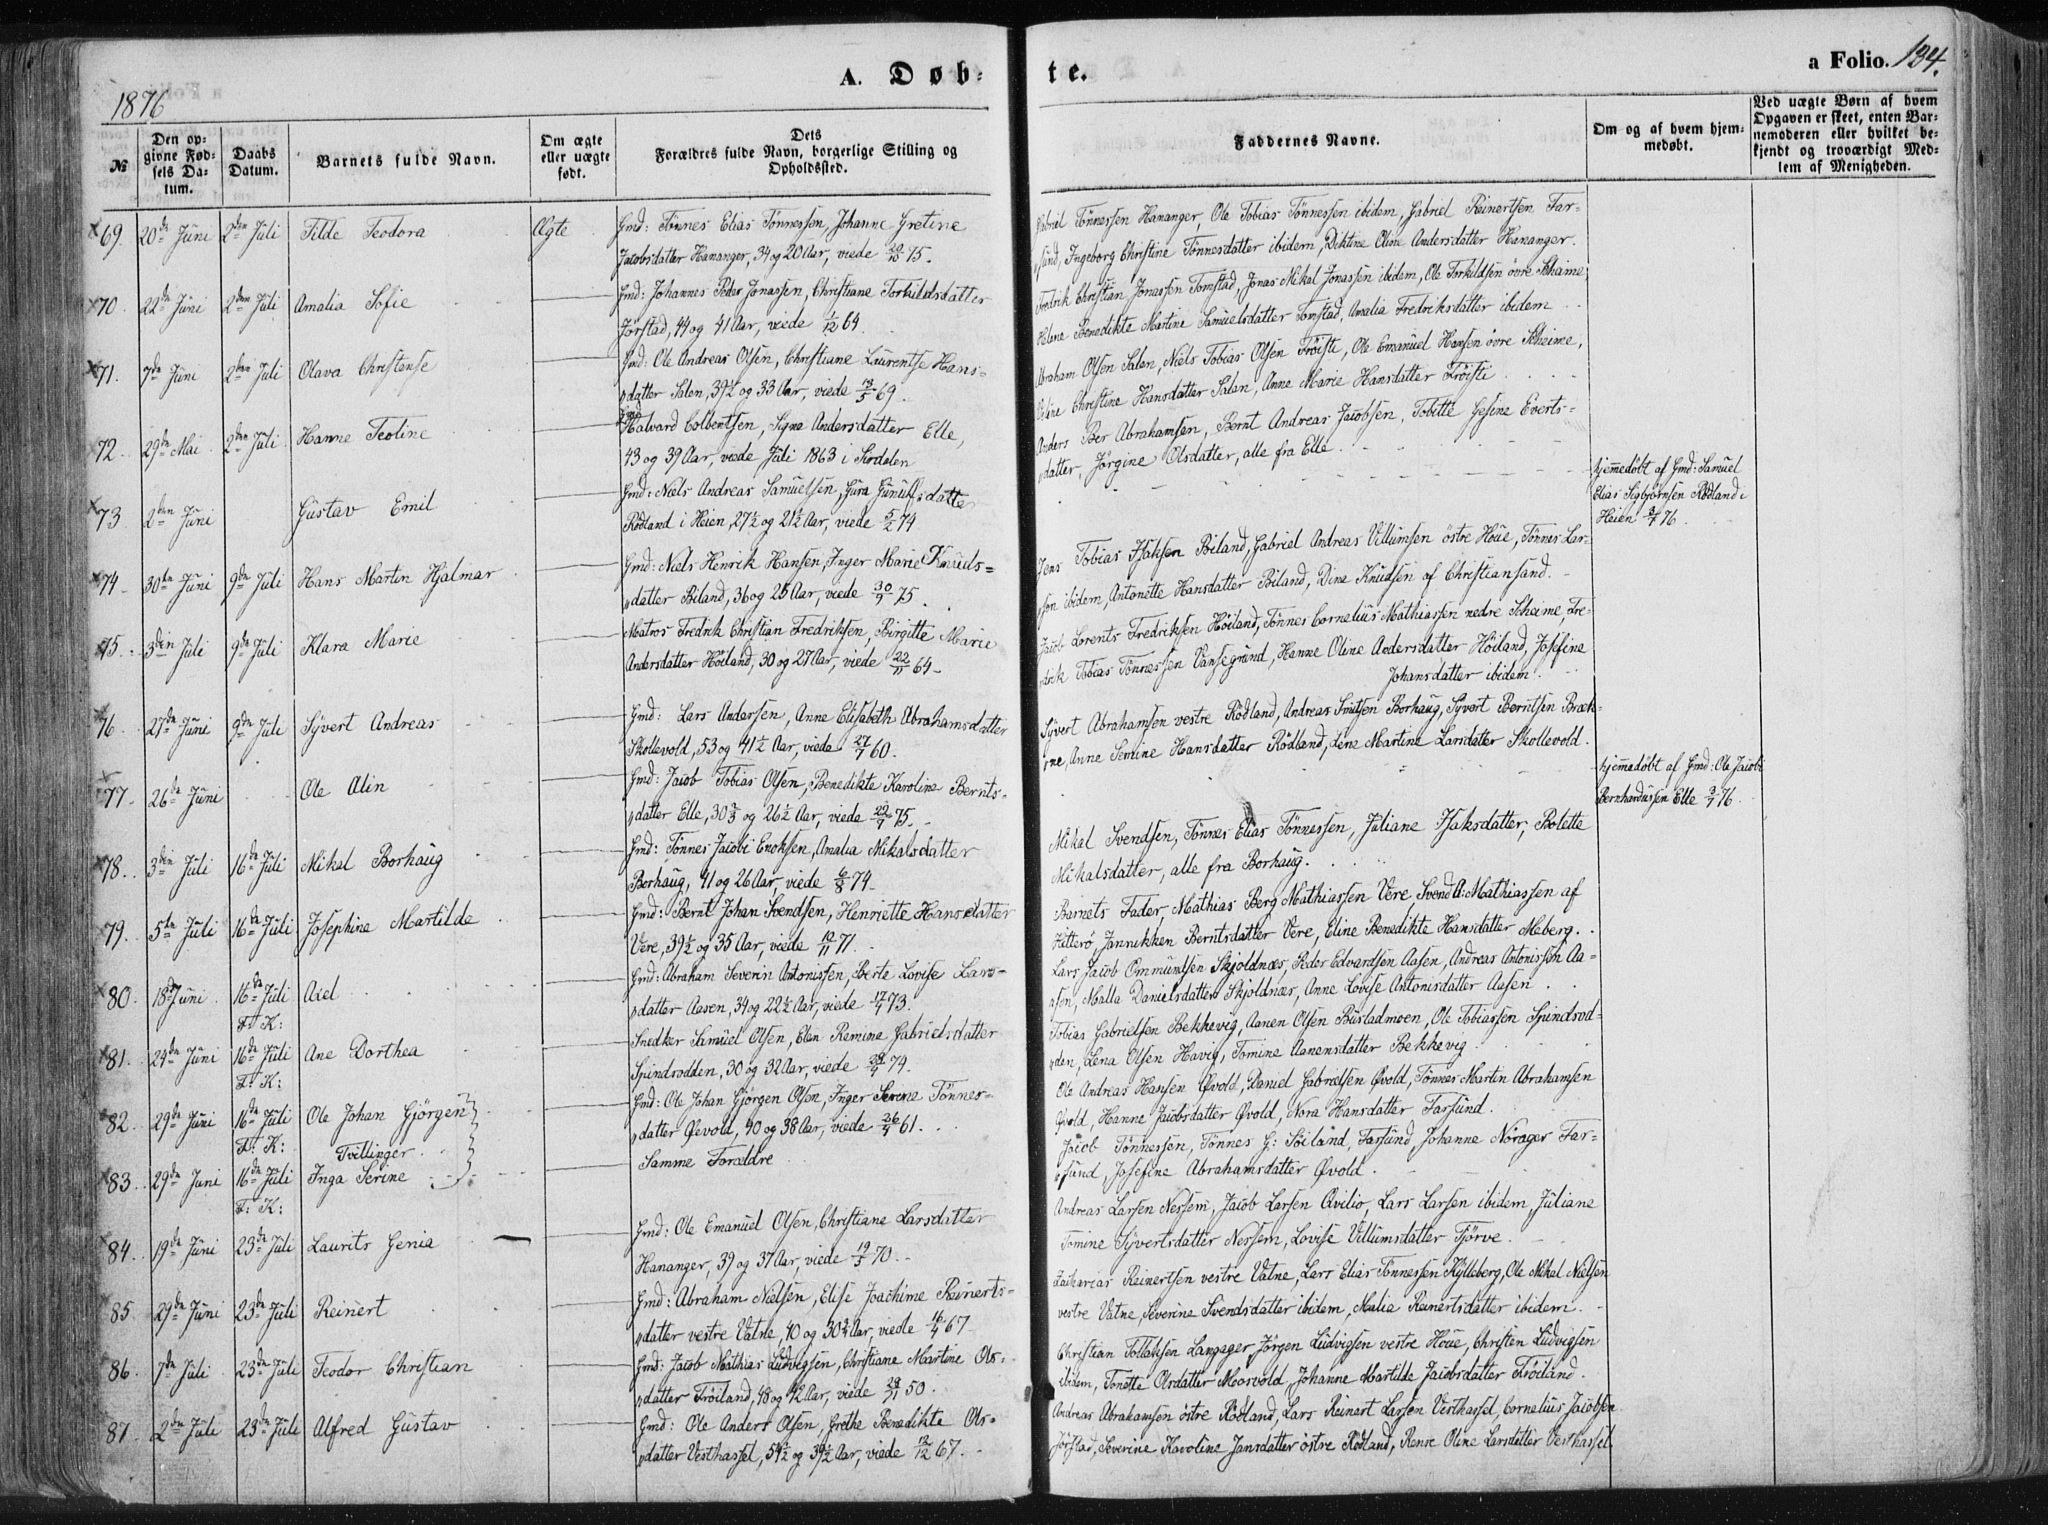 A. Døb-
te.
a Folio. 134.
1876
№
Den op-
givne Fød-
sels Da-
tum.
Daabs
Datum.
Barnets fulde Navn.
Om ægte
eller uægte
født.
Dets
Forældres fulde Navn, borgerlige Stilling og
Opholdssted.
Faddernes Navne.
Om og af hvem hjem-
medøbt.
Ved uægte Børn af hvem
Opgaven er skeet, enten Bar-
nemoderen eller hvilket be-
kjendt og troværdigt Med-
lem af Menigheden.
69. 20de Juni 2den Juli Tilde Teodora Ægte Gmd: Tønnes Elias Tønnessen, Johanne Gretine
Jacobsdatter Hananger, 34 og 20 Aar, viede 75.
Gabriel Tønnessen Hananger, Ole Tobias Tønnessen ibidem, Gabriel Reinertsen Far-
sund, Ingeborg Christine Tønnesdatter ibidem, Oline Andersdatter Hananger.
70. 22de Juni 2den Juli Amalia Sofie Gmd: Johannes Peder Jonassen, Christiane Torkildsdatter
Jørstad, 44 og 41 Aar, viede 1/12 64.
Fredrik Christian Jonassen Tomstad, Jonas Mikal Jonassen ibidem, Ole Torkildsen øvre Skeime,
Helene Benedikte Martine Samuelsdatter Tomstad, Amalia Fredriksdatter ibidem
71. 7de Juni 2den Juli Olava Christense Gmd: Ole Andreas Olsen, Christiane Laurentse Hans-
datter Salen, 39½ og 33 Aar, viede 13/5 69.
Abraham Olsen Salen, Niels Tobias Olsen Frøisti, Ole Emanuel Hansen øvre Skeime,
Christine Hansdatter Salen, Anne Marie Hansdatter Frøisti
72. 29de Mai 2den Juli Hanne Teoline Gmd Halvard Colbentsen, Signe Andersdatter Elle,
43 og 39 Aar, viede Juli 1863 i Sirdalen
Anders Ber Abrahamsen, Bernt Andreas Jacobsen, Tobitte Gesine Everts-
datter, Jørgine Olsdatter, alle fra Elle
73. 2den Juni Gustav Emil Gmd: Niels Andreas Samuelsen, Gura Gunulfsdatter
Rødland i Heien, 27½ og 21½ Aar, viede 5/2 74
hjemmedøbt af Gmd: Samuel
Elias Sigbjørnsen Rødland i
Heien 3/7 76.
74 30te Juni 9de Juli Hans Martin Hjalmar Gmd: Niels Henrik Hansen, Inger Marie Knuds-
datter Biland, 36 og 25 Aar, viede 30/7 75.
Jens Tobias Isaksen Biland, Gabriel Andreas Villumsen østre Houe, Tønnes Lar-
sen ibidem, Antonette Hansdatter Biland, Dine Knudsen af Christiansand.
75. 3die Juli 9de Juli Klara Marie Matros Fredrik Christian Fredriksen, Birgitte Marie
Andersdatter Høiland, 30 og 27 Aar, viede 22/11 64
Jacob Lorents Fredriksen Høiland, Tønnes Cornelius Mathiassen nedre Skeime, Fre-
drik Tobias Tønnessen Vansegrund, Hanne Oline Andersdatter Høiland, Josefine
Johansdatter ibidem.
76. 27de Juni 9de Juli Syvert Andreas Gmd: Lars Andersen, Anne Elisabeth Abrahamsdatter
Skollevold, 53 og 41½ Aar, viede 27/7 60.
Syvert Abrahamsen vestre Rødland, Andreas Smitsen Borhaug, Syvert Berntsen Bræk-
ne, Anne Semine Hansdatter Rødland, Lene Martine Larsdatter Skollevold.
77. 26de Juni Ole Alin Gmd: Jacob Tobias Olsen, Benedikte Karoline Bernts-
datter Elle, 30 og 26½ Aar, viede 22/7 75.
hjemmedøbt af Gmd: Ole Jacobi
Bernhardussen Elle 3/7 76.
78. 3die Juli 16de Juli Mikal Borhaug Gmd: Tønnes Jacobi Enoksen, Amalia Mikalsdatter
Borhaug, 41 og 26 Aar, viede 6/8 74
Mikal Svendsen, Tønnes Elias Tønnessen, Juliane Isaksdatter, Bolette
Mikalsdatter, alle fra Borhaug.
79. 5te Juli 16de Juli Josephine Martilde Gmd: Bernt Johan Svendsen, Henriette Hansdatter
Vere, 39½ og 35 Aar, viede 12/11 71.
Barnets Fader, Mathias Berg Mathiassen Vere, Svend A. Mathiassen af
Hitterø, Jannikken Berntsdatter Vere, Eline Benedikte Hansdatter Meberg.
80. 18de Juni 16de Juli F. K: Axel Gmd: Abraham Severin Antonissen, Berte Lovise Lars-
datter Aasen, 34 og 22½ Aar, viede 17/4 73.
Lars Jacob Ommundsen Skjoldnæs, Peder Edvardsen Aasen, Andreas Antonissen Aa-
sen, Malla Danielsdatter Skjoldnæs, Anne Lovise Antonisdatter Aasen
81. 24de Juni 16de Juli F. K: Ane Dorthea Snedker Samuel Olsen, Elen Remine Gabrielsdatter
Spindsodden, 30 og 32 Aar, viede 74.
Tobias Gabrielsen Bekkevig, Aanen Olsen Bustadmoen, Ole Tobiassen Spindsod-
den, Lena Olsen Havig, Tomine Aanensdatter Bekkevig
82. 29de Juni 16de Juli F. K: Ole Johan Gjørgen Gmd: Ole Johan Gjørgen Olsen, Inger Serine Tønnes-
datter Øvold, 40 og 38 Aar, viede 61.
Ole Andreas Hansen Øvold, Daniel Gabrielsen Øvold, Tønnes Martin Abrahamsen
Øvold, Hanne Jacobsdatter Øvold, Nora Hansdatter Farsund.
Tvillinger
83. 29de Juni 16de Juli F. K: Inga Serine Samme Forældre
Jacob Tønnessen, Tønnes G: Søiland, Farsund, Johanne Norager Far-
sund, Josefine Abrahamsdatter Øvold.
84. 19de Juni 23de Juli Laurits Genia Gmd: Ole Emanuel Olsen, Christiane Larsdatter
Hananger, 39 og 37 Aar, viede 19/5 70.
Andreas Larsen Nessem, Jacob Larsen Qvilio, Lars Larsen ibidem, Juliane
Tomine Syvertsdatter Nessem, Lovise Villumsdatter Tjørve.
85. 29de Juni 23de Juli Reinert Gmd: Abraham Nielsen, Elise Joachime Reinerts-
datter vestre Vatne, 40 og 30 Aar, viede 67
Zacharias Reinertsen vestre Vatne, Lars Elias Tønnessen Kylleberg, Ole Mikal Nielsen
vestre Vatne, Severine Svendsdatter ibidem, Malia Reinertsdatter ibidem.
86. 7de Juli 23de Juli Teodor Christian Gmd: Jacob Mathias Ludvigsen, Christiane Martine Ols-
datter Frøiland, 48 og 42 Aar, viede 50.
Christian Tollaksen Langager, Jørgen Ludvigsen vestre Houe, Christen Ludvigsen
ibidem, Tonette Olsdatter Morvold, Johanne Martilde Jacobsdatter Frøiland.
87. 2den Juli 23de Juli Alfred Gustav Gmd: Ole Anders Olsen, Grethe Benedikte Ols-
datter Vesthassel, 54½ og 39½ Aar, viede 12/12 67.
Andreas Abrahamsen østre Rødland, Lars Reinart Larsen Vesthassel, Cornelius Jacobsen
Jørstad, Severine Karoline Jansdatter østre Rødland, Rense Oline Larsdatter Vesthassel